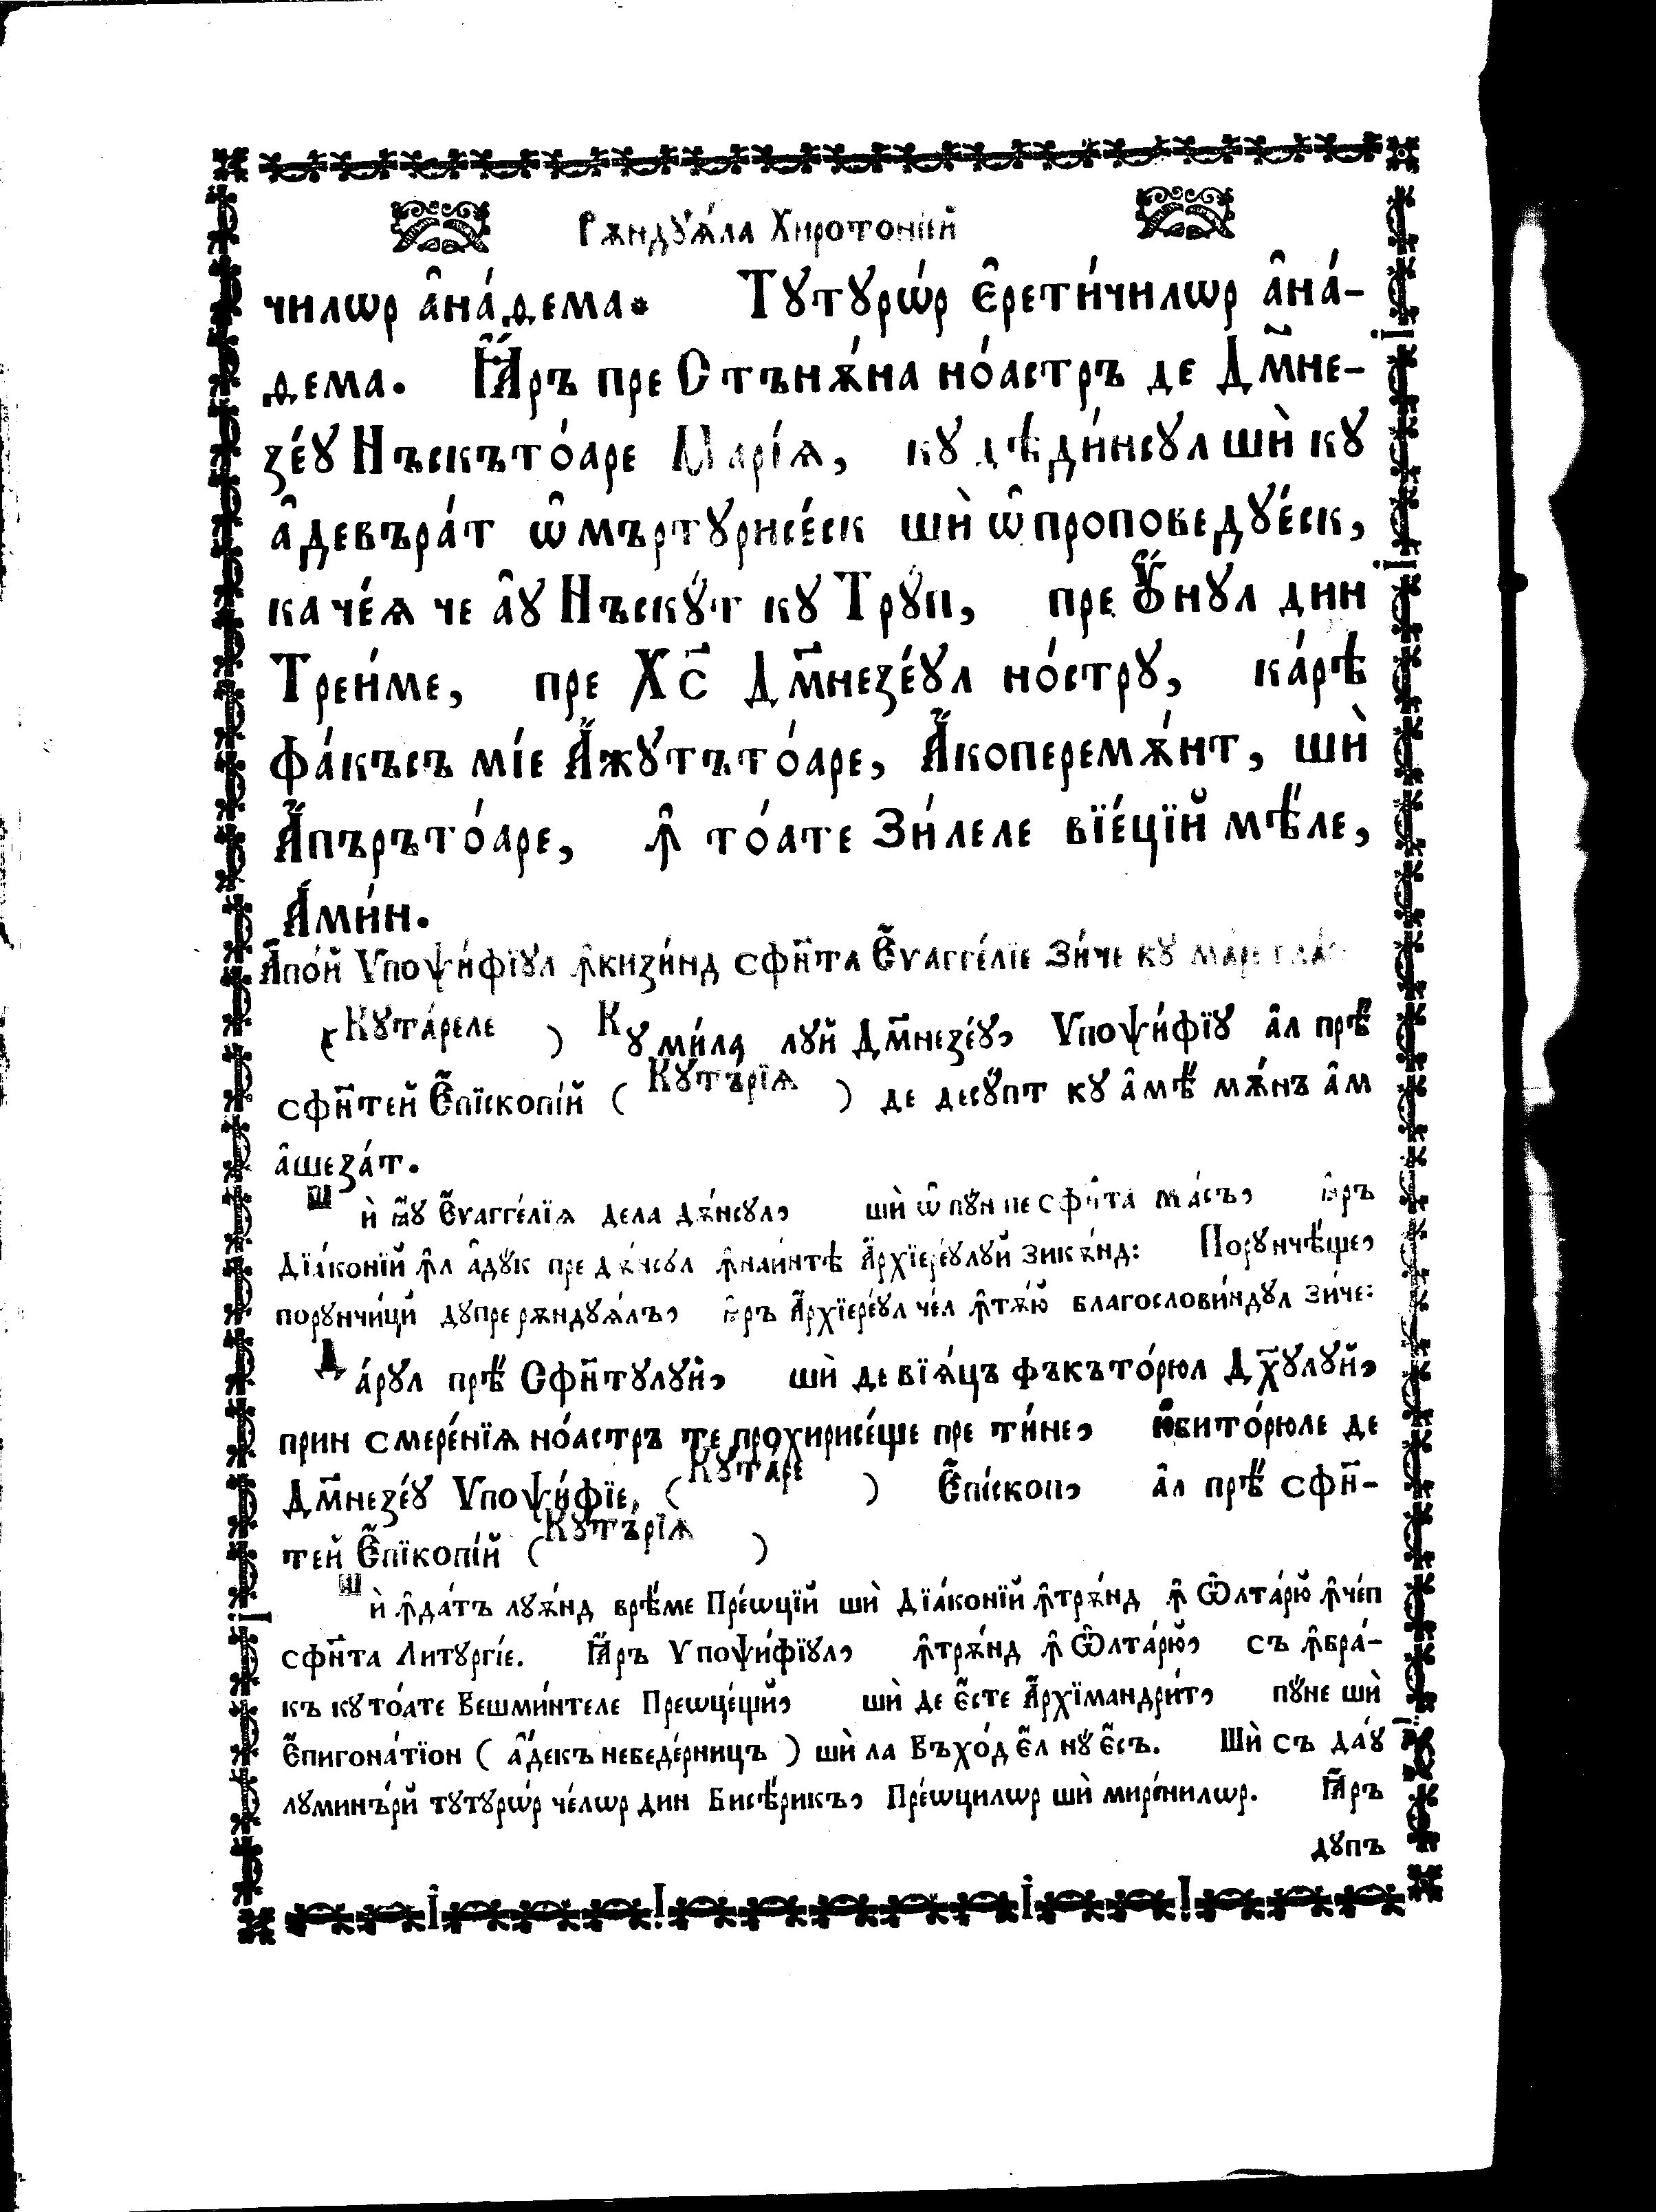 Рѫндꙋѧ́ла Хиротонїй
чилѡр а̑на́ѳема* Тꙋтꙋрѡ́р є̑рети́чилѡр а̑на́-
ѳема. Ꙗ҆́ръ пре Стъпѫ́на но́астръ де Дм҃не-
зе́ꙋ Нъскъто́аре Марі́ѧ, кꙋ дѣди́нсꙋл шѝ кꙋ
а̑девъра́т ѡ̑ мъртꙋрисе́ск шѝ ѡ̑ проповедꙋе́ск,
ка че́ѧ че а̑ꙋ Нъскꙋ́т кꙋ Трꙋ́п, пре Ꙋ҆́нꙋл дин
Треи́ме, пре Хс҃ Дм҃незе́ꙋл но́стрꙋ, ка́рѣ
фа́късъ мі́е А҆жꙋтъто́аре, А҆коперемѫ́нт, шѝ
А҆пъръто́аре, ꙟ̑ то́ате Зи́леле вїе́цїй мѣ́ле,
А҆ми́н.
А҆по́й Ѵпоѱи́фїꙋл ꙟ̑кизи́нд сфн҃та Є҆ѵагге́лїе Зи́че кꙋ ма́ре гла́с
( Кꙋта́реле ) Кꙋ ми́ла лꙋй Дм҃незе́ꙋ, Ѵпоѱи́фїꙋ а̑л прѣ́
сфн҃тей Є҆пїскопі́й ( Кꙋтъ́рїѧ ) де десꙋ́пт кꙋ а̑ мѣ̀ мѫ́нъ а̑м
а̑шеза́т.
Шѝ ꙗ҆́ꙋ Є҆ѵагге́лїѧ дела дѫ́нсꙋл, шѝ ѡ̑ пꙋ́н пе сфн҃та ма́съ, ꙗ҆ръ
Дїа́конїй ꙟ̑л а̑дꙋ́к пре дѫ́нсꙋл ꙟ̑наи́нтѣ А҆рхїере́ꙋлꙋй зикѫ́нд: Порꙋнчѣ́ще,
порꙋнчи́цй дꙋпре рѫндꙋѧ́лъ, ꙗ҆ръ А҆рхїере́ꙋл че́л ꙟ̑тѫ́ю благослови́ндꙋл зи́че:
Да́рꙋл прѣ́ Сфн҃тꙋлꙋй, шѝ де вїѧ́цъ фъкъто́рюл Дх҃ꙋлꙋй,
прин смере́нїѧ но́астръ те прохирисе́ще пре ти́не, ю҆бито́рюле де
Дм҃незе́ꙋ Ѵпоѱи́фїе, ( Кꙋта́ре ) Є҆пі́скоп, а̑л прѣ́ сфн҃-
тей Є҆пїкопі́й ( Кꙋтъ́рїѧ )
Шѝ ꙟ̑да́тъ лꙋѫ́нд врѣ́ме Пре́ѡцїй шѝ Дїа́конїй ꙟ̑трѫ́нд ꙟ̑ Ѡ҆лта́рю ꙟ̑че́п
сфн҃та Литꙋргі́е. Ꙗ҆́ръ Ѵпоѱи́фїꙋл, ꙟ̑трѫ́нд ꙟ̑ Ѡ҆лта́рю, съ ꙟ̑бра́-
къ кꙋ то́ате Вешми́нтеле Преѡце́щй, шѝ де є҆́сте А҆рхїмандри́т, пꙋ́не шѝ
Є҆пигона́тїон ( а҆декъ небеде́рницъ ) шѝ ла Въхо́д є҆́л нꙋ є҆́съ. Шѝ съ да́ꙋ
лꙋминъ́рй тꙋтꙋрѡ́р че́лѡр дин Бисѣ́рикъ, Пре́ѡцилѡр шѝ мире́нилѡр. Ꙗ҆́ръ
дꙋпъ